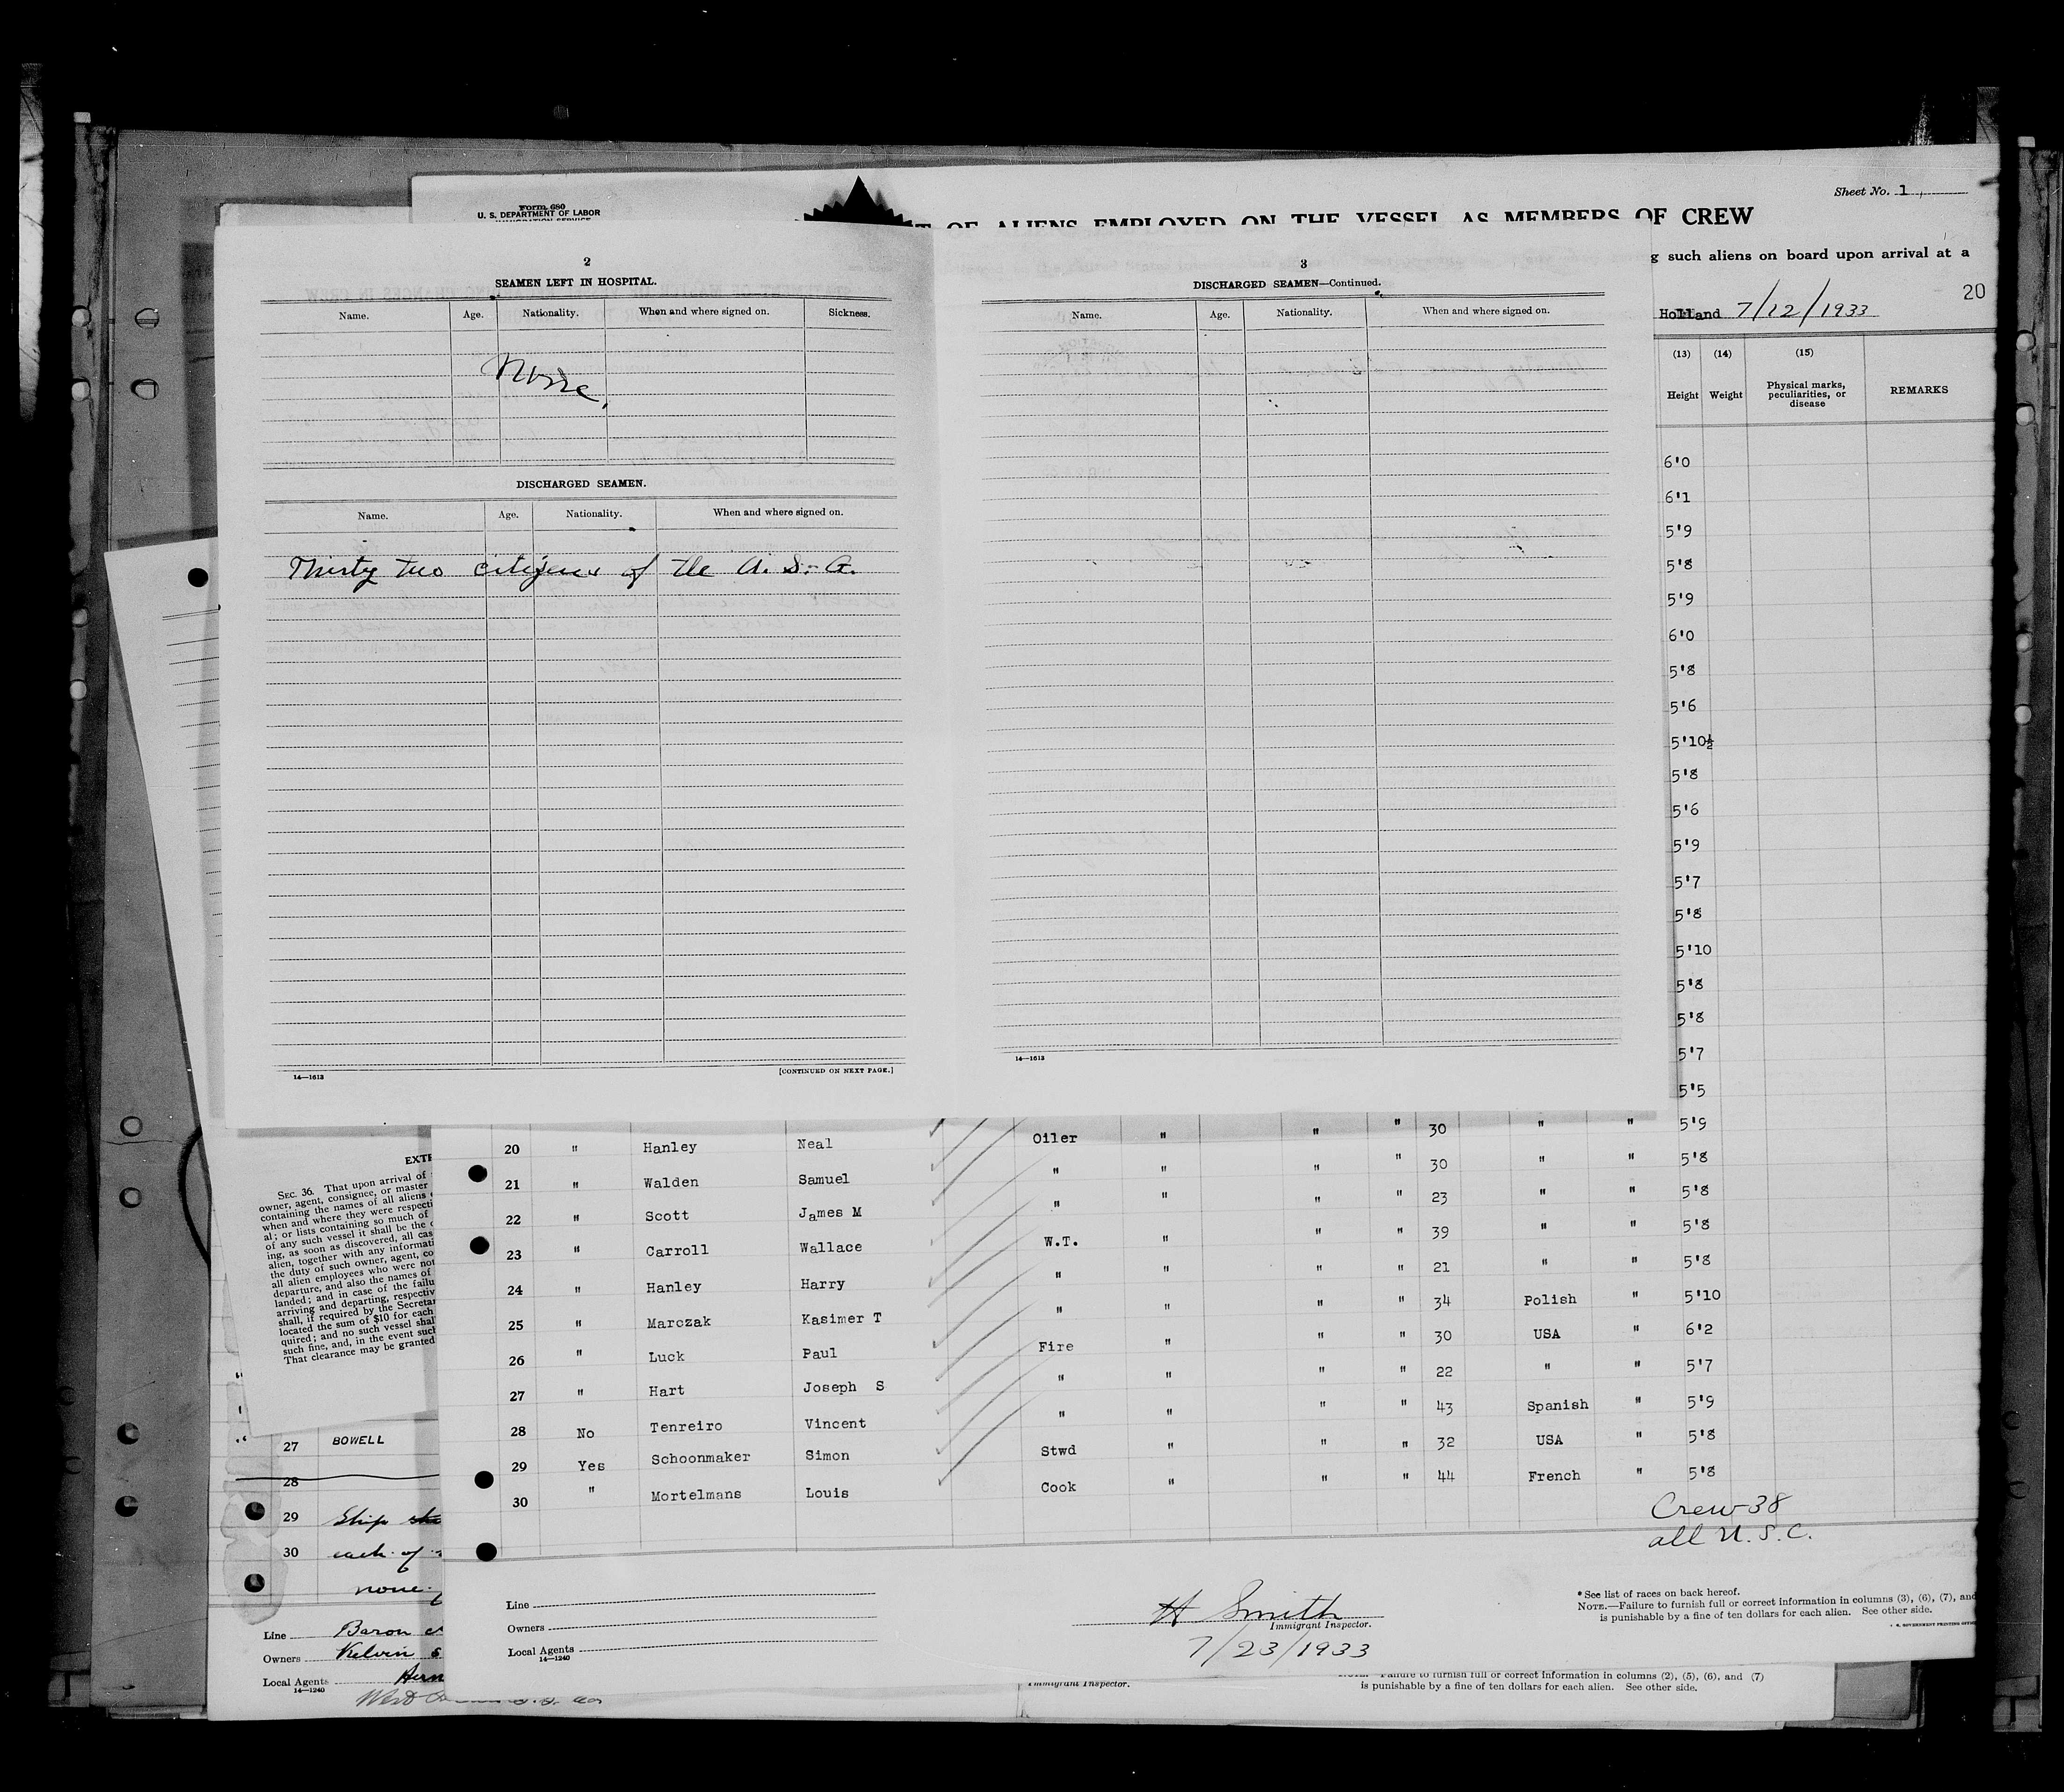 Form 680
U. S. DEPARTMENT OF LABOR
Sheet No. 1
OF ALIENS EMPLOYED ON THE VESSEL AS MEMBERS OF CREW
such aliens on board upon arrival at a
20
Holland 7/12/1933
(13) (14) (15)
Height Weight Physical marks, peculiarities, or disease REMARKS
6'0
6'1
5'9
5'8
5'9
6'0
5'8
5'6
5'10½
5'8
5'6
5'9
5'7
5'8
5'10
5'8
5'8
5'7
5'5
2
SEAMEN LEFT IN HOSPITAL.
Name. Age. Nationality. When and where signed on. Sickness.
None.
DISCHARGED SEAMEN.
Name. Age. Nationality. When and where signed on.
Thirty two citizens of the U. S. A.
14—1613 [CONTINUED ON NEXT PAGE.]
3
DISCHARGED SEAMEN—Continued.
Name. Age. Nationality. When and where signed on.
14—1613
20 " Hanley Neal Oiler " " " 30 " " 5'9
21 " Walden Samuel " " " " 30 " " 5'8
22 " Scott James M " " " " 23 " " 5'8
23 " Carroll Wallace W.T. " " " 39 " " 5'8
24 " Hanley Harry " " " " 21 " " 5'8
25 " Marczak Kasimer T " " " " 34 Polish " 5'10
26 " Luck Paul Fire " " " 30 USA " 6'2
27 " Hart Joseph S " " " " 22 " " 5'7
28 No Tenreiro Vincent " " " " 43 Spanish " 5'9
29 Yes Schoonmaker Simon Stwd " " " 32 USA " 5'8
30 " Mortelmans Louis Cook " " " 44 French " 5'8
Crew 38
all U.S.C.
Line
Owners
Local Agents
14—1240
H Smith
Immigrant Inspector.
7/23/1933
* See list of races on back hereof.
NOTE.—Failure to furnish full or correct information in columns (3), (6), (7), and
is punishable by a fine of ten dollars for each alien. See other side.
SEC. 36. That upon arrival of
owner, agent, consignee, or master
containing the names of all aliens
when and where they were respecti
al; or lists containing so much of
of any such vessel it shall be the
ing, as soon as discovered, all cas
alien, together with any informati
the duty of such owner, agent, co
all alien employees who were not
departure, and also the names of
landed; and in case of the failu
arriving and departing, respectiv
shall, if required by the Secretar
located the sum of $10 for each
quired; and no such vessel shal
such fine, and, in the event such
That clearance may be granted
27 BOWELL
28
29 Ship
30 each of
none.
Line Baron
Owners Kelvin S
Local Agents
14—1240
Immigrant Inspector.
Failure to furnish full or correct information in columns (2), (5), (6), and (7)
is punishable by a fine of ten dollars for each alien. See other side.